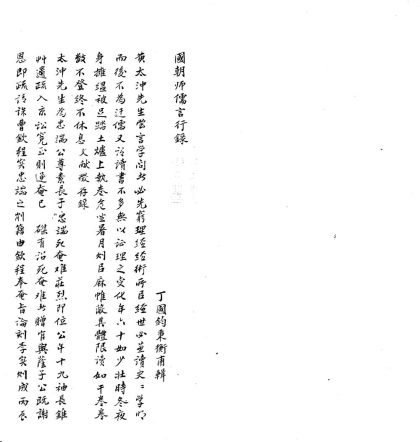 國朝師儒言行錄
丁國鈞秉衡甫輯
黃太沖先生嘗言學問者必先窮理經經術所㠯經世必並讀史〻學明
而後不為迂儒又謂讀書不多無以證理之變化年六十如少壯時冬夜
身擁縕被足踏土爐上執卷危坐暑月則㠯麻帷蔽其體限讀如干卷卷
數不登終不休息 文獻徵存錄
太沖先生為忠端公尊素長子忠端死奄難莊烈即位公年十九袖長錐
艸遺疏入京訟冤至則逆奄已磔有詔死奄難者贈官與蔭子公既謝
恩即疏請誅曹欽程實忠端之削籍由欽程奉奄旨論劾李實則成丙辰